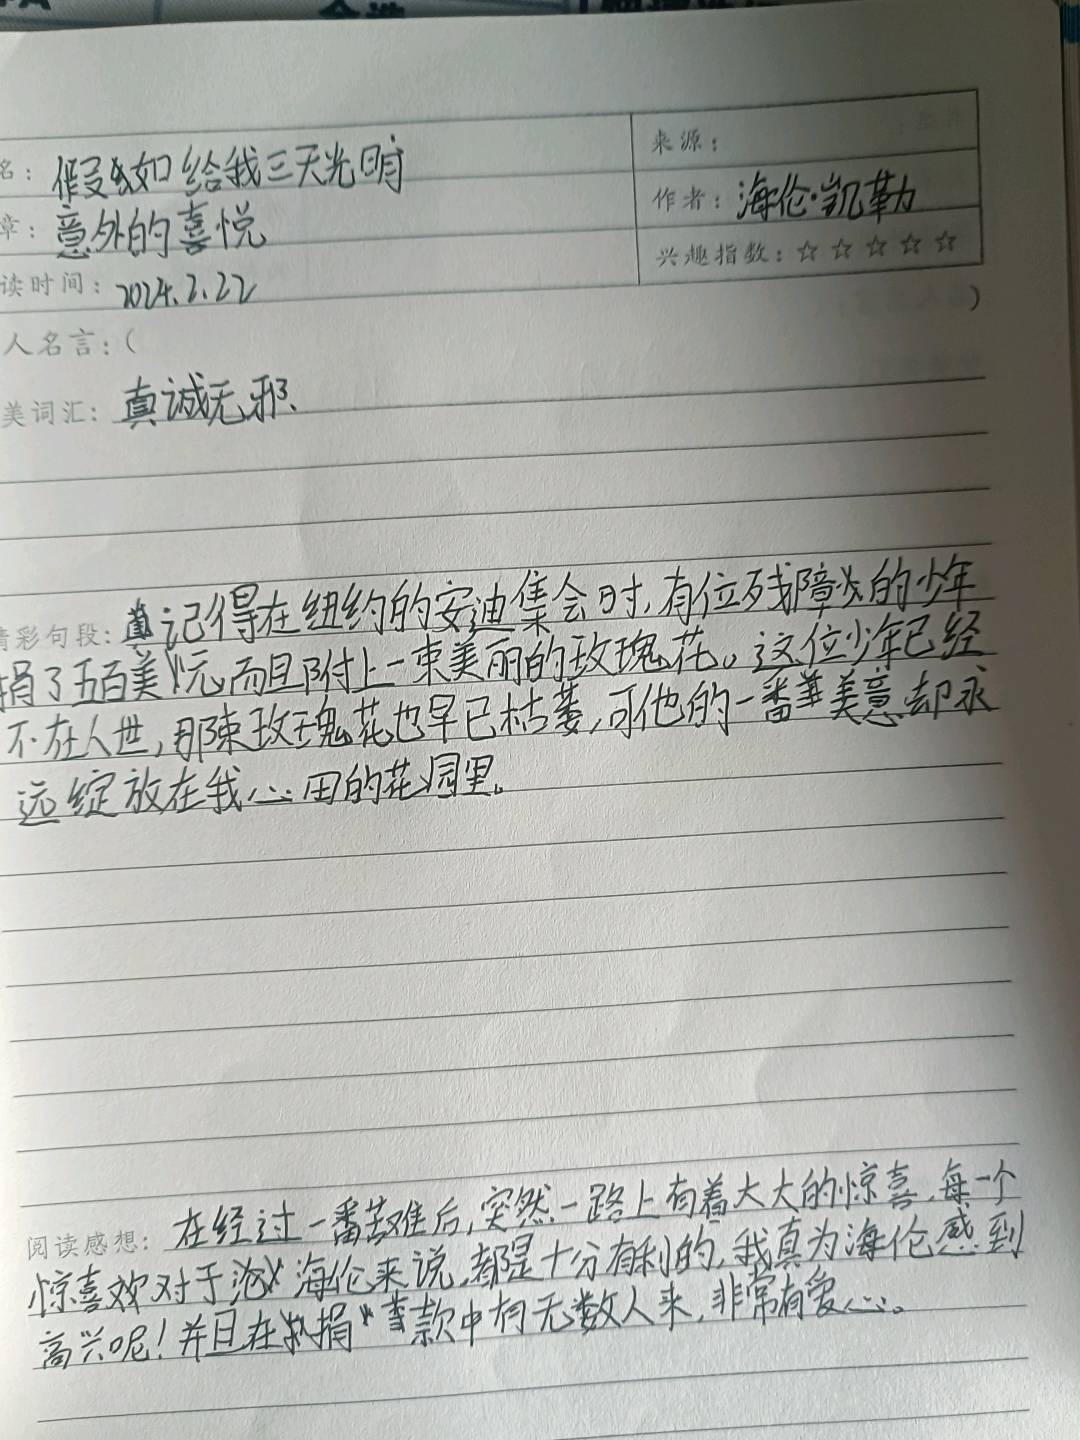 名：假如给我三天光明
来源：
章：意外的喜悦
作者：海伦·凯勒
读时间：2024.2.22
兴趣指数：☆☆☆☆☆
人名言：（ ）
美词汇：真诚无邪、
精彩句段：记得在纽约的安迪集会时，有位残障的少年
捐了五百美元，而且附上一束美丽的玫瑰花。这位少年已经
不在人世，那束玫瑰花也早已枯萎，可他的一番美意却永
远绽放在我心田的花园里。
阅读感想：在经过一番苦难后，突然一路上有着大大的惊喜，每一个
惊喜对于海伦来说，都是十分有利的，我真为海伦感到
高兴呢！并且在捐款中有无数人来，非常有爱心。